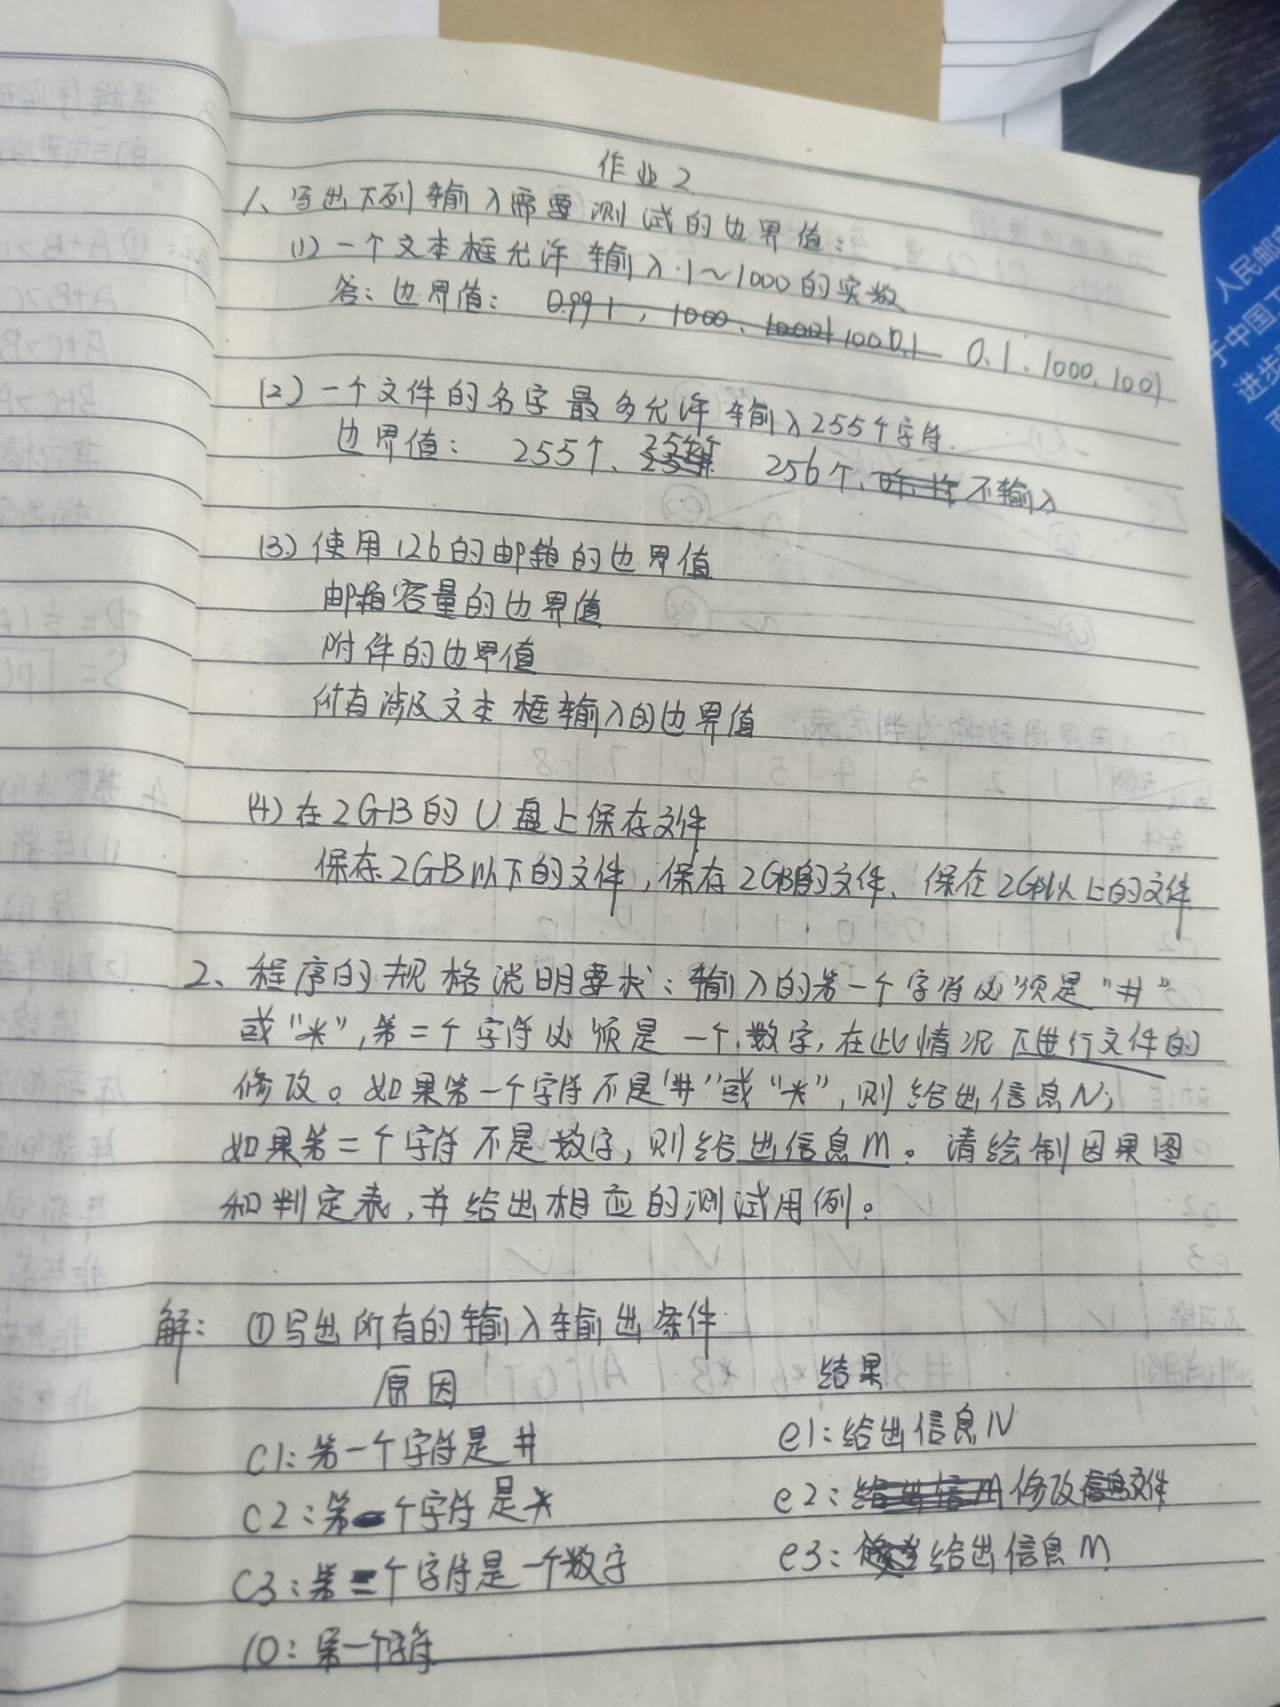 作业2
1、写出下列输入需要测试的边界值：
(1) 一个文本框允许输入1～1000的实数
答：边界值： 0.1、1000、1001
(2) 一个文件的名字最多允许输入255个字符.
边界值： 255个、 256个、不输入
(3) 使用126的邮箱的边界值
邮箱容量的边界值
附件的边界值
所有涉及文本框输入的边界值
(4) 在2GB的U盘上保存文件
保存2GB以下的文件，保存2GB的文件、保存2GB以上的文件
2、程序的规格说明要求：输入的第一个字符必须是“#”
或“*”，第二个字符必须是一个数字，在此情况下进行文件的
修改。如果第一个字符不是“#”或“*”，则给出信息N；
如果第二个字符不是数字，则给出信息M。请绘制因果图
和判定表，并给出相应的测试用例。
解： ①写出所有的输入输出条件
原因 结果
C1：第一个字符是# e1：给出信息N
C2：第一个字符是* e2：修改文件
C3：第二个字符是一个数字 e3：给出信息M
10：第一个字符
人民邮
于中国
进步